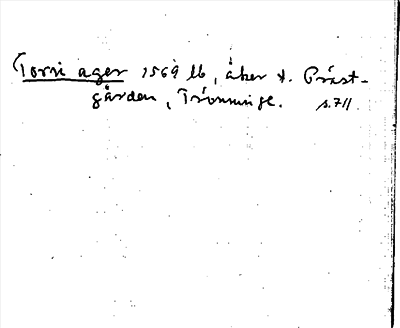 Torni ager 1569 lb, åker t. Präst-
gården, Trönninge. s. 711.